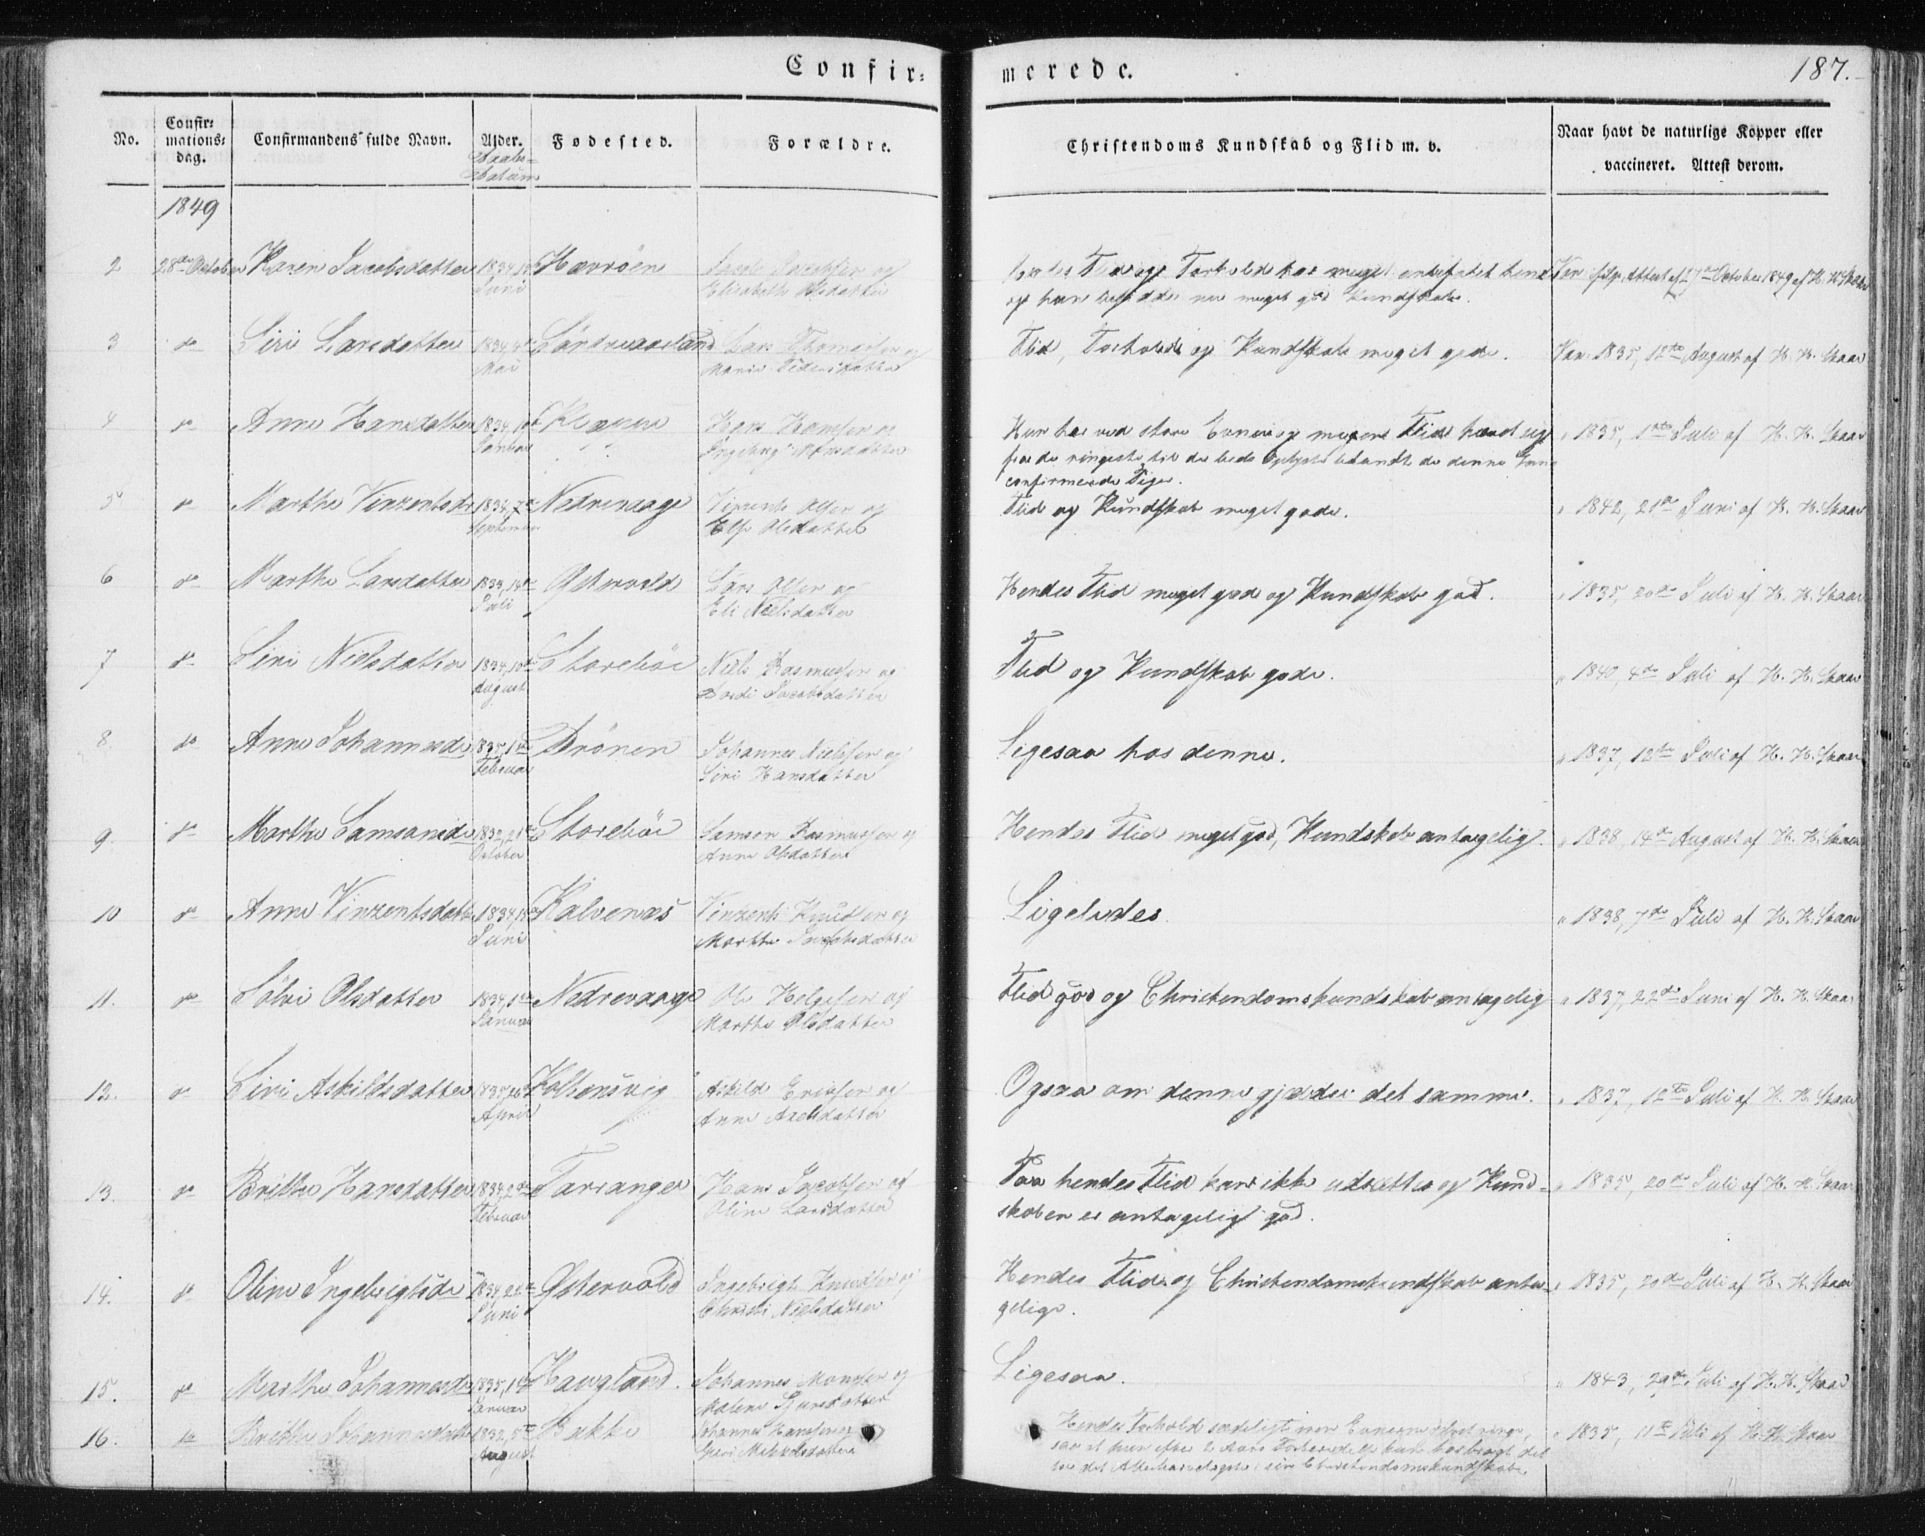 Confir-
merede.
187.
No.
Confir-
mations-
dag.
Confirmandens fulde Navn.
Alder.
Daabs-
datum
Fødested.
Forældre.
Christendoms Kundskab og Flid m. v.
Naar havt de naturlige Kopper eller
vaccineret. Attest derom.
1849
2 28de October Karen Jacobsdatter 1834 Juni Havrøen
Jacob Jacobsen og
Elisabeth Olsdatter
meget god Kundskab.
3 do Siri Larsdatter 1834 Mai
Lars Thomasen og
Marie Pedersdatter
Flid, Forhold og Kundskab meget gode.
Vac. 1835, 12te August af H. H. Skaar
4 do Anne Hansdatter 1834 Januar
Hans Hansen og
Ingeborg Monsdatter
Hun har ved store Evner og megen Flid hævet sig
fra de ringeste til de bedst oplyste blandt de denne Gang
confirmerede Piger.
" 1835, 1ste Juli af H. H. Skaar
5 do Marthe Vinzentsdr 1834, 7de September Nedrevaage
Vinzents Olsen og
Else Olsdatter
Flid og Kundskab meget gode.
" 1842, 21de Juni af H. H. Skaar
6 do Marthe Larsdatter Juli Østervold
Lars Olsen og
Eli Nielsdatter
Hendes Flid meget god og Kundskab god.
" 1835, 20de Juli af H. H. Skaar
7 do Siri Nielsdatter 1834, 10de August Storebøe
Niels Rasmusen og
Jacobsdatter
Flid og Kundskab gode.
" 1840, 4de Juli af H. H. Skaar
8 do Anne Johannesdr 1835, 1ste Februar Drönen
Johannes Nielsen og
Siri Hansdatter
Ligesaa hos denne.
" 1837, 12te Juli af H. H. Skaar
9. do Marthe Samsonsdr 1832, 21de October Storebøe
Samson Rasmusen og
Anne Olsdatter
Hendes Flid meget god, Kundskab antagelig.
" 1838, 14de August af H. H. Skaar
10 do Anne Vinzentsdatter 1834 Juni Kalvenæs
Vinzents Knudsen og
Marthe Jacobsdatter
Ligeledes.
" 1838, 7de Juli af H. H. Skaar
11. do Sölvi Olsdatter 1834, 1ste Januar Nedrevaage
Ole Helgesen og
Marthe Olsdatter
Flid god og Christendomskundskab antagelig
" 1837, 22de Juni af H. H. Skaar
12. do Siri Askildsdatter 1835 April Kolbensvig
Askild Ericksen og
Anne Axelsdatter
Ogsaa om denne gjælder det samme.
" 1837, 12te Juli af H. H. Skaar
13. do Brithe Hansdatter 1834, 2den Februar Torsanger
Hans Jacobsen og
Oline Larsdatter
Paa hendes Flid kan ikke udsættes og Kund-
skaben er antageligt god.
" 1835, 20de Juli af H. H. Skaar
14. do Oline Ingebrigtsdr 1834 Juni Østervold
Ingebrigt Knudsen og
Christi Nielsdatter
Hendes Flid og Christendomskundskab anta-
gelige.
" 1835, 20de Juli af H. H. Skaar
15. do Marthe Johannesdr 1835, 1ste Januar Haugland.
Johannes Monsen og
Malene
Ligesaa.
" 1843, 29de Juli af H. H. Skaar
16. do Brithe Johannesdatter 1832, 5te August Bakke
Johannes Hansen og
Hendes Forhold sædeligt men Evnerne
Christendomskundskab.
" 1835, 11te Juli af H. H. Skaar